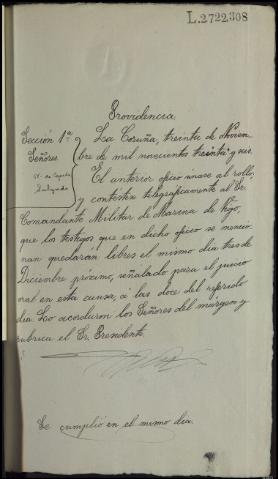 L.2722,308
Providencia
Sección 1ª
Señores
La Coruña, treinta de Noviem-
bre de mil novecientos treinta y seis.
El anterior oficio únase al rollo,
y contéstese telegráficamente al Sr.
Comandante Militar de Marina de Vigo,
que los testigos que en dicho oficio se mencio-
nan quedarán libres el mismo día tres de
Diciembre próximo, señalado para el juicio
oral en esta causa, á las doce del referido
día. Lo acordaron los Señores del márgen y
rubrica el Sr. Presidente.
Se cumplió en el mismo día.